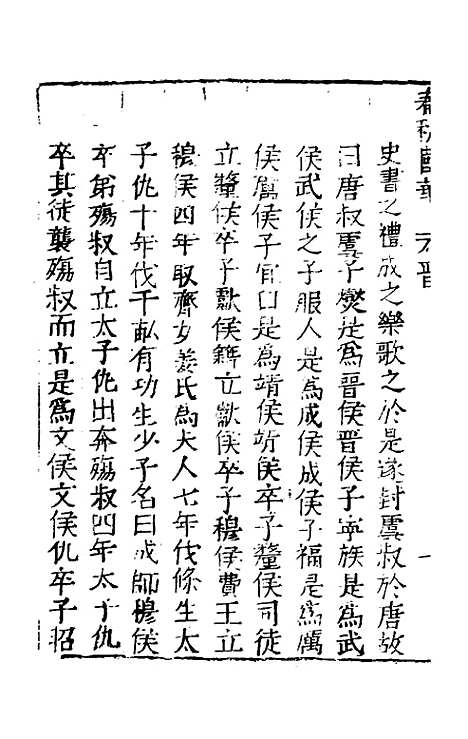 春秋國華 六晋 一
史書之禮成之樂歌之於是遂封虞叔於唐故
曰唐叔虞子燮是爲晋侯晋侯子寧族是爲武
侯武侯之子服人是爲成侯成侯子福是爲厲
侯厲侯子宜臼是爲靖侯靖侯卒子釐侯司徒
立釐侯卒子獻侯籍立獻侯卒子穆侯費王立
穆侯四年取齊女姜氏爲夫人七年伐條生太
子仇十年伐千畝有功生少子名曰成師穆侯
卒弟殤叔自立太子仇出奔殤叔四年太子仇
卒其徒襲殤叔而立是爲文侯文侯仇卒子招